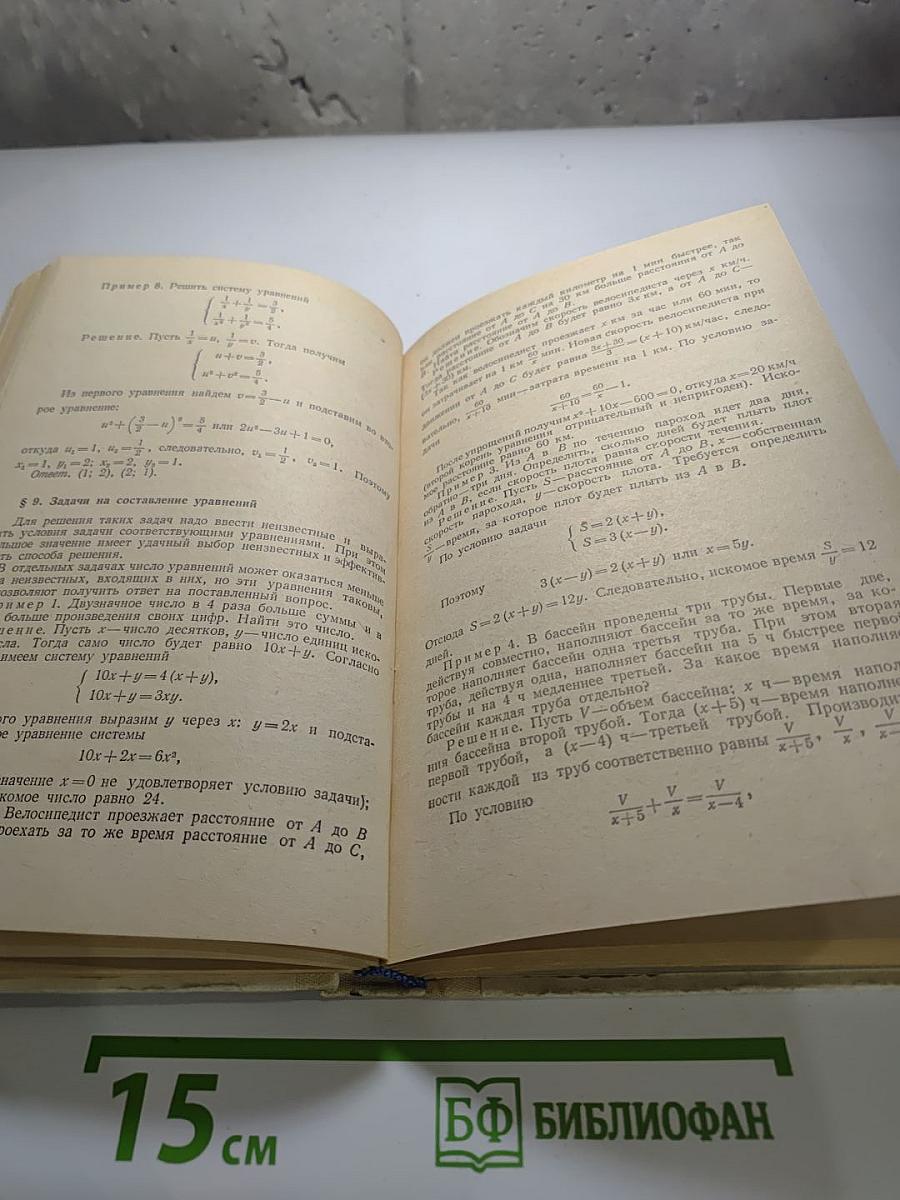 Пример 8. Решить систему уравнений
{ 1/x + 1/y = 3/2,
1/x² + 1/y² = 5/4.
Решение. Пусть 1/x = u, 1/y = v. Тогда получим
{ u + v = 3/2,
u² + v² = 5/4.
Из первого уравнения найдем v = 3/2 — u и подставим во
рое уравнение:
u² + (3/2 — u)² = 5/4 или 2u² — 3u + 1 = 0,
откуда u₁ = 1, u₂ = 1/2, следовательно, v₁ = 1/2, v₂ = 1. Поэтому
x₁ = 1, y₁ = 2; x₂ = 2, y₂ = 1.
Ответ. (1; 2), (2; 1).
§ 9. Задачи на составление уравнений
Для решения таких задач надо ввести неизвестные и выра-
ть условия задачи соответствующими уравнениями. При этом
льшое значение имеет удачный выбор неизвестных и эффектив-
ть способа решения.
В отдельных задачах число уравнений может оказаться меньше
а неизвестных, входящих в них, но эти уравнения таковы,
озволяют получить ответ на поставленный вопрос.
ример 1. Двузначное число в 4 раза больше суммы и в
больше произведения своих цифр. Найти это число.
шение. Пусть x — число десятков, y — число единиц иско-
сла. Тогда само число будет равно 10x + y. Согласно
имеем систему уравнений
{ 10x + y = 4 (x + y),
10x + y = 3xy.
ого уравнения выразим y через x: y = 2x и подста-
ое уравнение системы
10x + 2x = 6x²,
начение x = 0 не удовлетворяет условию задачи);
комое число равно 24.
Велосипедист проезжает расстояние от A до B
роехать за то же время расстояние от A до C,
проезжать каждый километр на 1 мин быстрее, так
расстояние от A до C на 30 км больше расстояния от A до
Найти расстояние от A до B.
Решение. Обозначим скорость велосипедиста через x км/ч.
Тогда расстояние от A до B будет равно 3x км, а от A до C —
км.
Так как велосипедист проезжает x км за час или 60 мин, то
он затрачивает на 1 км 60/x мин. Новая скорость велосипедиста при
движении от A до C будет равна (3x + 30)/3 = (x + 10) км/час, следо-
вательно, 60/(x + 10) мин — затрата времени на 1 км. По условию за-
дачи
60/(x + 10) = 60/x — 1.
После упрощений получим x² + 10x — 600 = 0, откуда x = 20 км/ч
(второй корень уравнения отрицательный и непригоден). Иско-
мое расстояние равно 60 км.
Пример 3. Из A в B по течению пароход идет два дня,
обратно — три дня. Определить, сколько дней будет плыть плот
из A в B, если скорость плота равна скорости течения.
Решение. Пусть S — расстояние от A до B, x — собственная
скорость парохода, y — скорость плота. Требуется определить
S/y — время, за которое плот будет плыть из A в B.
По условию задачи
{ S = 2 (x + y),
S = 3 (x — y).
Поэтому 3 (x — y) = 2 (x + y) или x = 5y.
Отсюда S = 2 (x + y) = 12y. Следовательно, искомое время S/y = 12
дней.
Пример 4. В бассейн проведены три трубы. Первые две,
действуя совместно, наполняют бассейн за то же время, за ко-
торое наполняет бассейн одна третья труба. При этом вторая
труба, действуя одна, наполняет бассейн на 5 ч быстрее перво
трубы и на 4 ч медленнее третьей. За какое время наполня
бассейн каждая труба отдельно?
Решение. Пусть V — объем бассейна; x ч — время напол
ния бассейна второй трубой. Тогда (x + 5) ч — время наполне
первой трубой, а (x — 4) ч — третьей трубой. Производит
ности каждой из труб соответственно равны V/(x + 5), V/x, V/x—
По условию
V/(x + 5) + V/x = V/(x — 4),
15 см
БФ БИБЛИОФАН